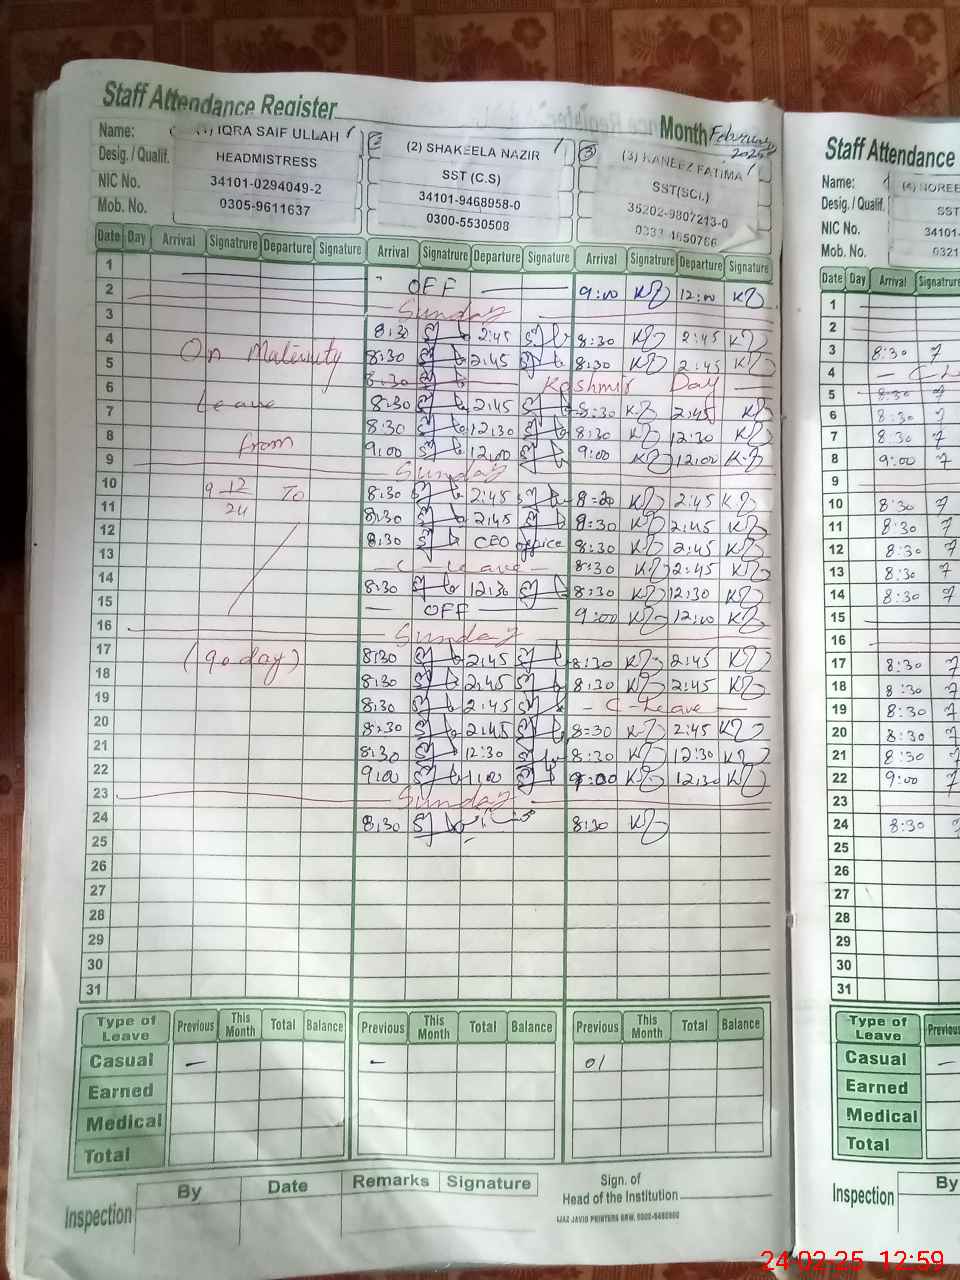 Staff Attendance Register
Month February 2025
Name: (1) IQRA SAIF ULLAH (2) SHAKEELA NAZIR (3) KANEEZ FATIMA
Desig. / Qualif. HEADMISTRESS SST (C.S) SST(SCI.)
NIC No. 34101-0294049-2 34101-9468958-0 35202-9807213-0
Mob. No. 0305-9611637 0300-5530508 0333-4650766
Date Day Arrival Signatrure Departure Signature Arrival Signatrure Departure Signature Arrival Signatrure Departure Signature
1
2 OFF 9:00 12:00
3 Sunday
4 8:30 2:45 8:30 2:45
5 On Maternity 8:30 2:45 8:30 2:45
6 8:30 Kashmir Day
7 Leave 8:30 2:45 8:30 2:45
8 from 8:30 12:30 8:30 12:30
9:00 12:00 9:00 12:00
9 Sunday
10 9 12/24 To 8:30 2:45 8:30 2:45
11 8:30 2:45 8:30 2:45
12 8:30 CEO office 8:30 2:45
13 C-Leave 8:30 2:45
14 8:30 12:30 8:30 12:30
15 OFF 9:00 12:00
16 Sunday
17 (90 day) 8:30 2:45 8:30 2:45
18 8:30 2:45 8:30 2:45
19 8:30 2:45 - C-Leave -
20 8:30 2:45 8:30 2:45
21 8:30 12:30 8:30 12:30
22 9:00 1:00 9:00 12:30
23 Sunday
24 8:30 8:30
25
26
27
28
29
30
31
Type of Leave Previous This Month Total Balance Previous This Month Total Balance Previous This Month Total Balance
Casual - - 01
Earned
Medical
Total
Inspection By Date Remarks Signature
Sign. of
Head of the Institution
IJAZ JAVID PRINTERS GRW.
Staff Attendance
Name: (4) NOREE
Desig. / Qualif. SST
NIC No. 34101-
Mob. No. 0321
Date Day Arrival Signatrure
1
2
3 8:30
4 - C-Le
5 8:30
6 8:30
7 8:30
8 9:00
9
10 8:30
11 8:30
12 8:30
13 8:30
14 8:30
15
16
17 8:30
18 8:30
19 8:30
20 8:30
21 8:30
22 9:00
23
24 8:30
25
26
27
28
29
30
31
Type of Leave Previous
Casual -
Earned
Medical
Total
Inspection By
24-02-25 12:59